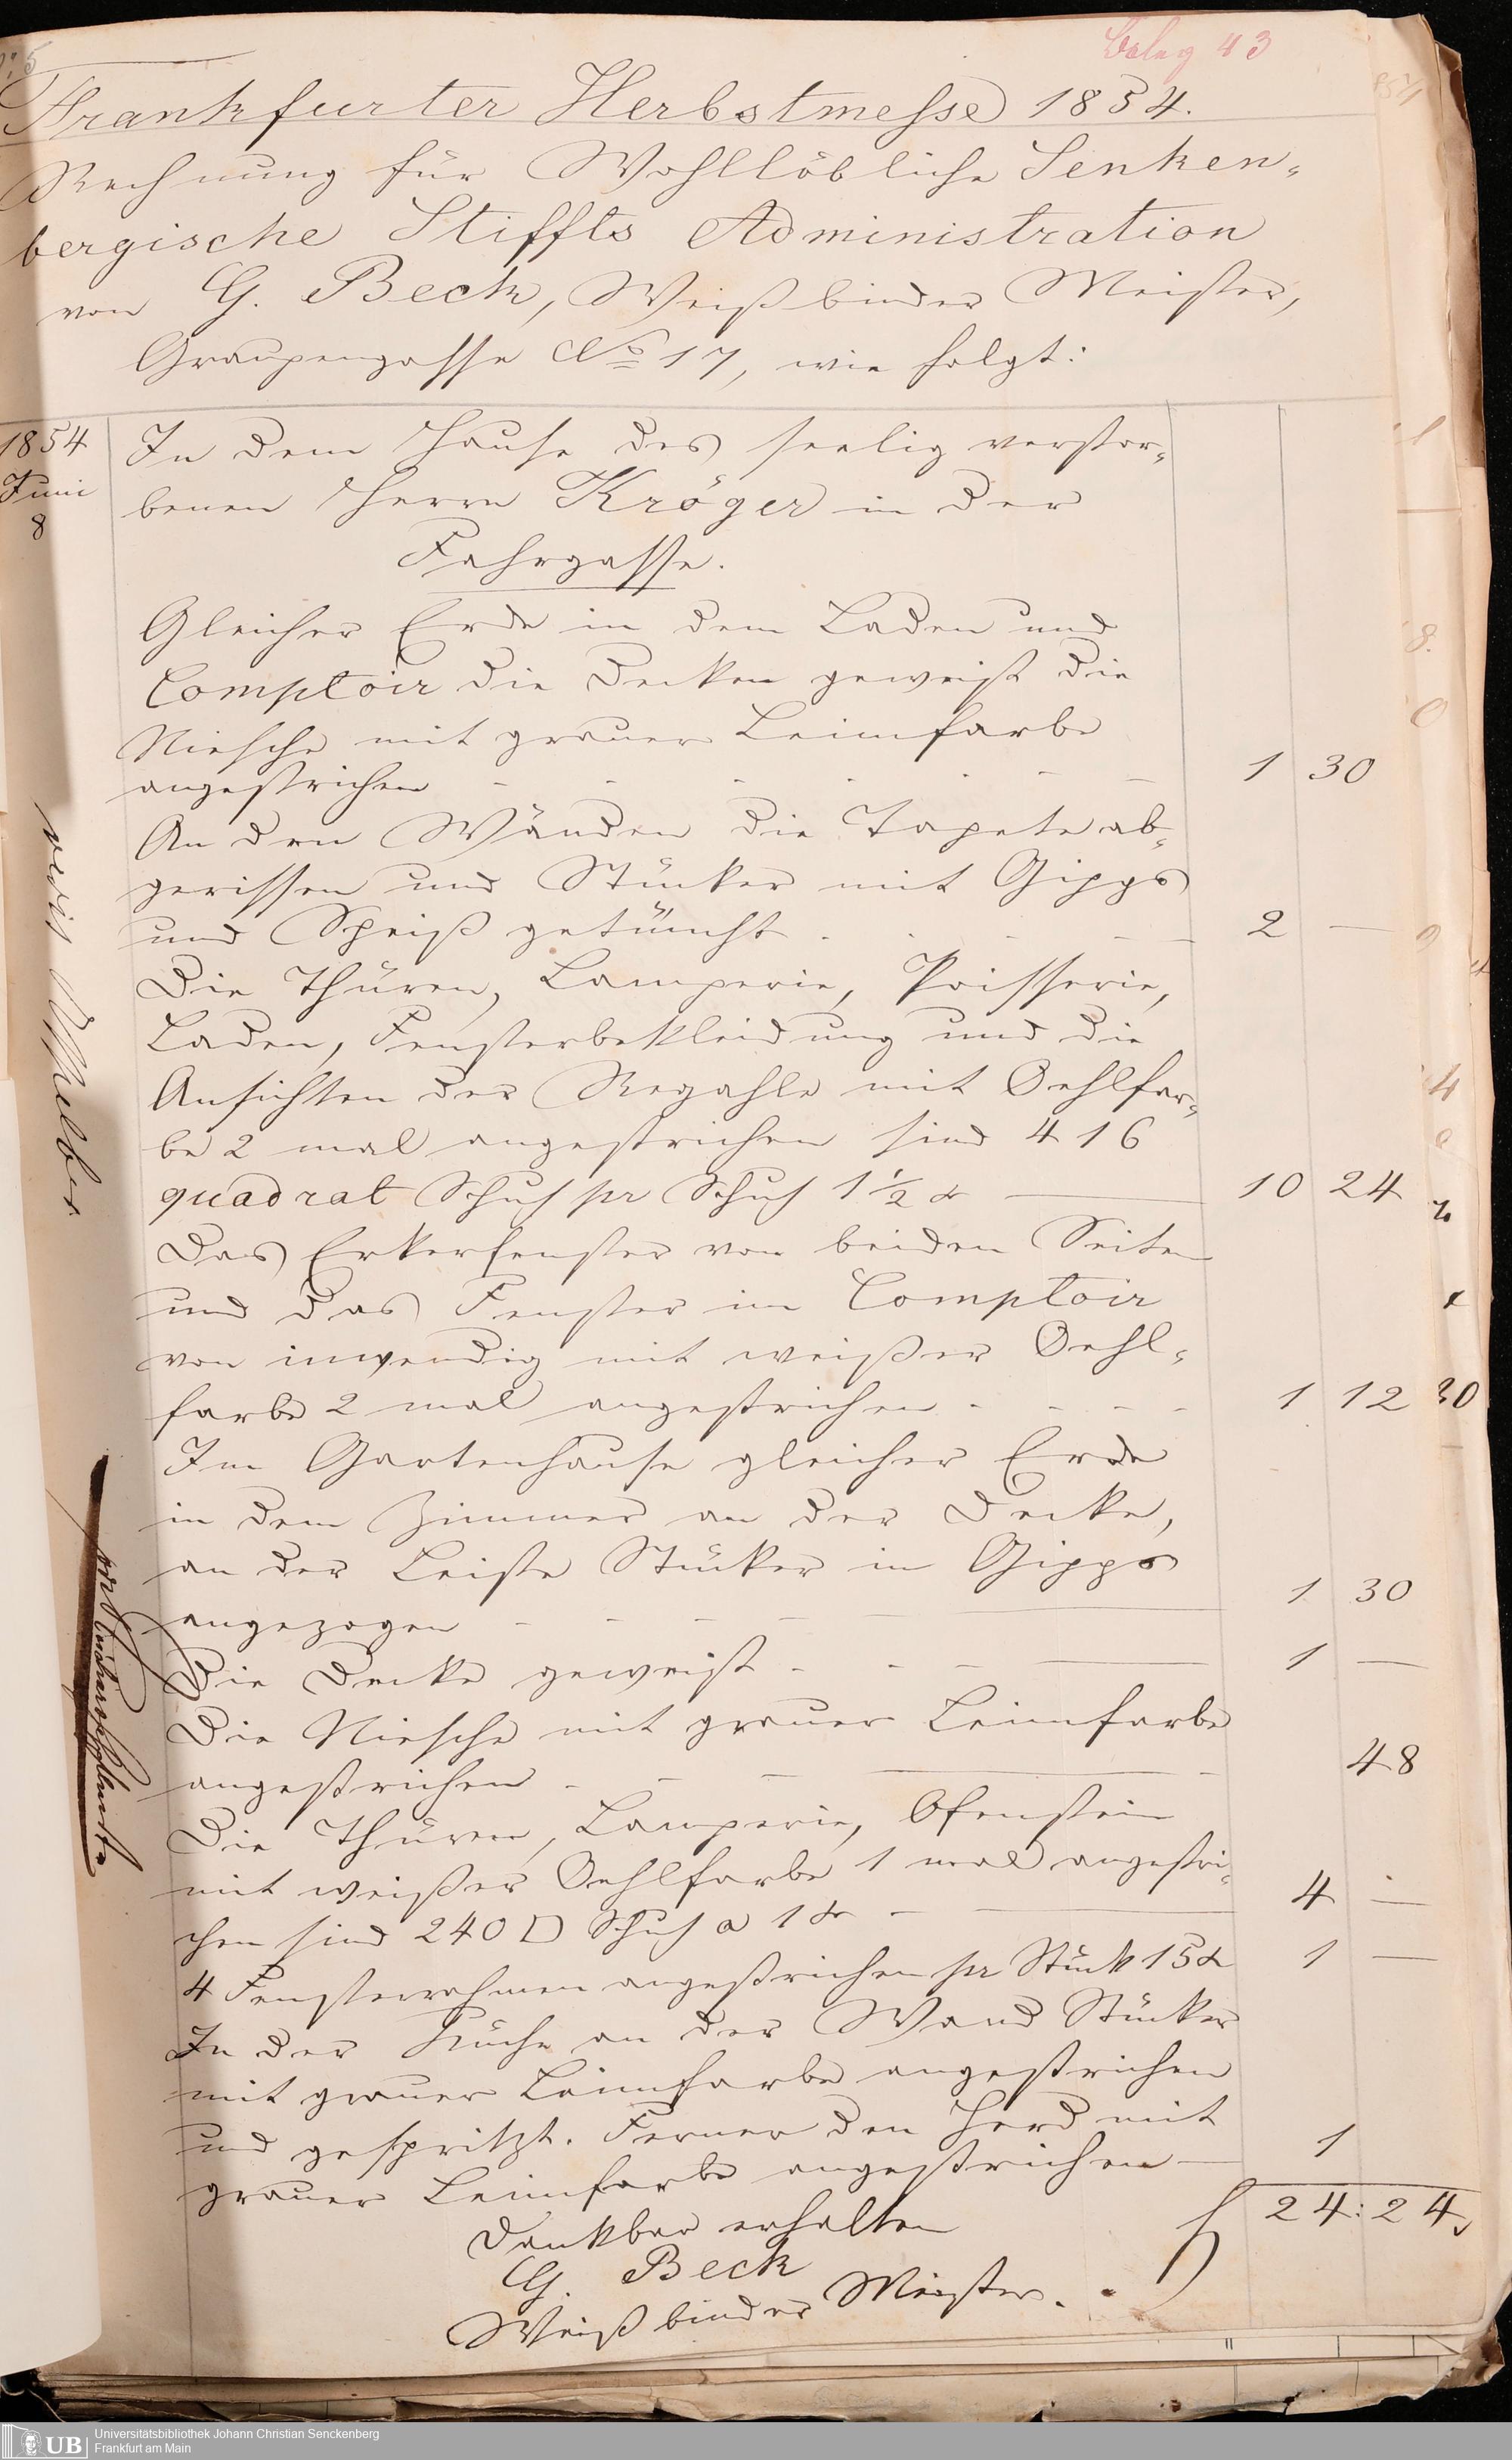 Beleg 43
Frankfurter Herbstmesse 1854.
Rechnung für Wohllöbliche Senken-
bergische Stiffts Administration
von G. Beck, Weißbinder Meister,
Graupengasse No 17, wie folgt:
1854
Juni
8
In dem Hause des seelig verstor-
benen Herrn Kröger in der
Fahrgasse.
Gleicher Erde in dem Laden und
Comptoir die Decken geweist die
Niesche mit grauer Leimfarbe
angestrichen - - - - - - - 1 30
An den Wänden die Tapete ab-
gerissen und Stücker mit Gipps
und Speiß getüncht - - - - - 2 —
Die Thüren, Lamperie, Poisserie,
Laden, Fensterbekleidung und die
Ansichten der Regahle mit Oehlfar-
be 2 mal angestrichen sind 416
quadrat Schuh pr Schuh 1 1/2 x — 10 24
Das Erkerfenster von beiden Seiten
und das Fenster im Comptoir
von inwendig mit weißer Oehl-
farbe 2 mal angestrichen - - - - 1 12
Im Gartenhause gleicher Erde
in dem Zimmer an der Decke,
an der Leiste Stücker in Gipps
angezogen - - - - — 1 30
Die Decke geweist - - - — 1 —
Die Niesche mit grauer Leimfarbe
angestrichen - - - — 48
Die Thüren, Lamperie, Ofenstein
mit weißer Oehlfarbe 1 mal angestri-
chen sind 240 □ Schuh a 1 x - — 4 —
4 Fensterrahmen angestrichen pr Stück 15 x 1 —
In der Küche an der Wand Stücker
mit grauer Leimfarbe angestrichen
und gespritzt. Ferner den Herd mit
grauer Leimfarbe angestrichen — 1
f 24:24
Dankbar erhalten
G. Beck
Weißbinder Meister.
UB
Universitätsbibliothek Johann Christian Senckenberg
Frankfurt am Main